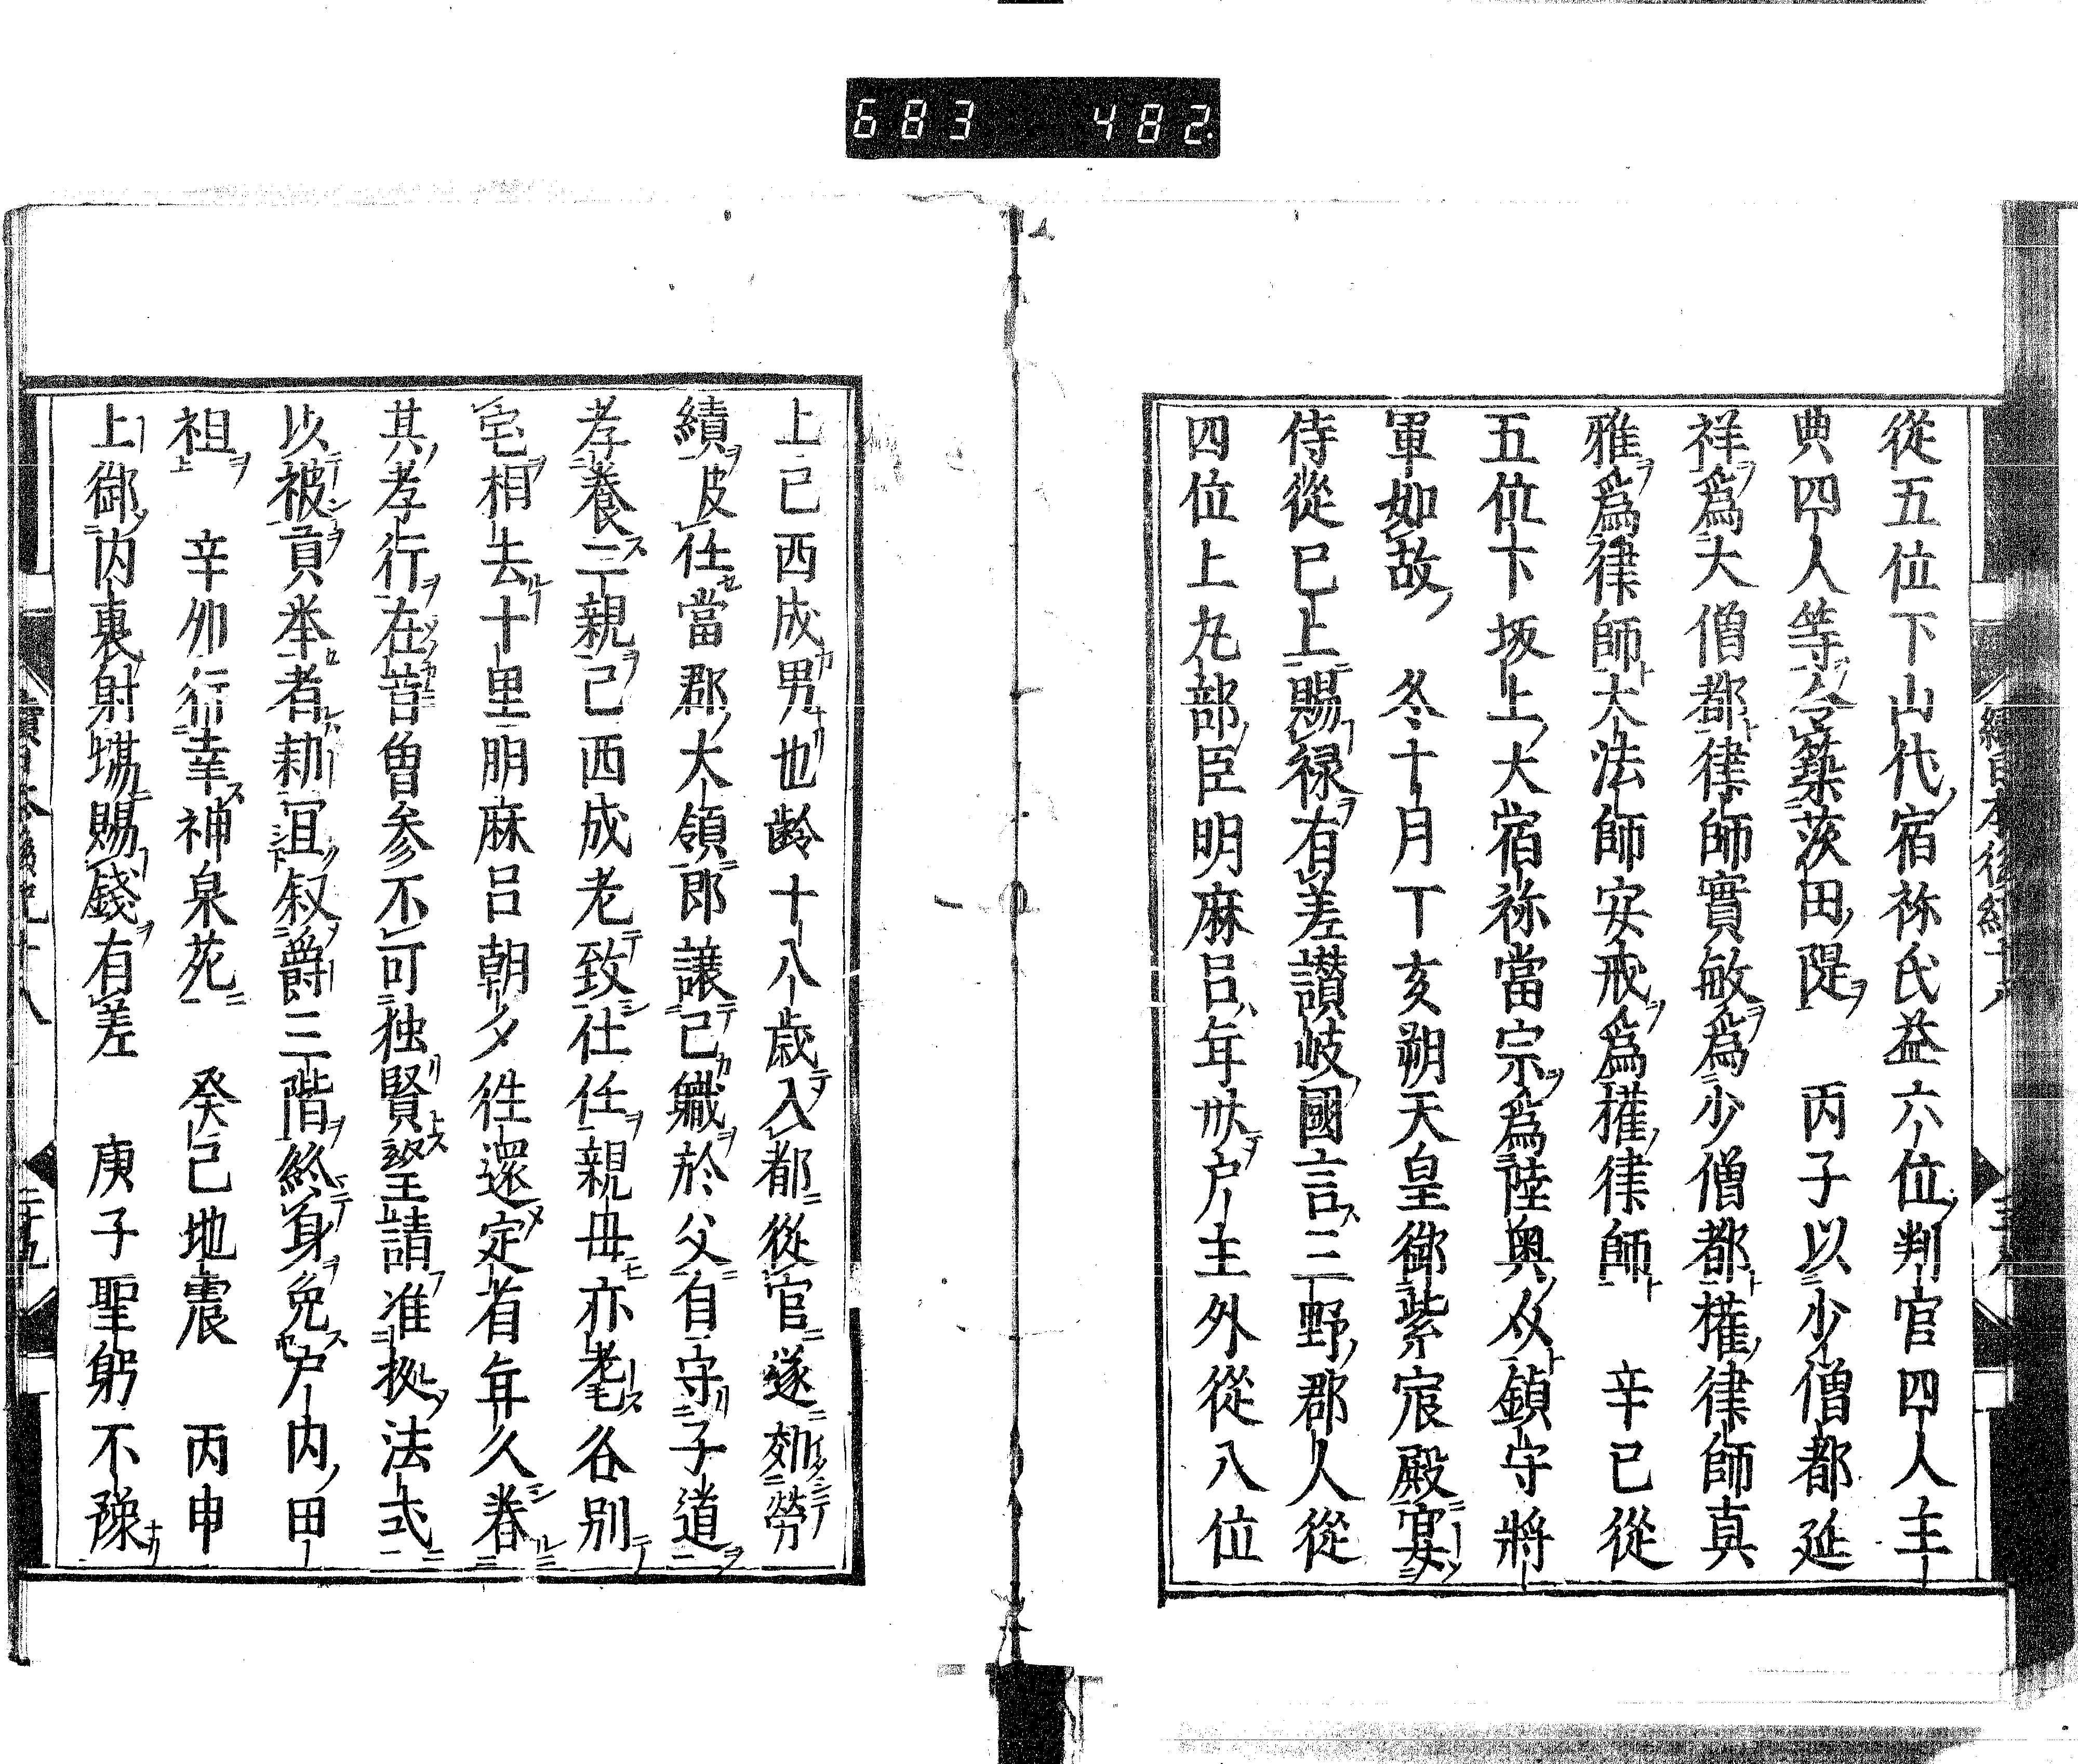 683 482
從五位下山代宿祢氏益六位判官四人主
典四人等令築茨田隄　丙子以少僧都延
祥爲大僧都律師實敏爲少僧都權律師真
雅爲律師大法師安戒爲權律師　辛巳從
五位下坂上大宿祢當宗爲陸奥鎮守將
軍如故　冬十月丁亥朔天皇御紫宸殿宴
侍從已上賜禄有差讃岐國言三野郡人從
四位上丸部臣明麻呂年卅戸主外從八位
上己西成男也齡十八歳入都從官遂効勞
績皮任當郡大領即譲己職於父自守子道
孝養二親己西成老致仕任親毋亦耄各別
宅相去十里明麻呂朝夕徃還定省年久眷
其孝行在昔曽参不可独賢望請准拠法式
以被貢举者勅冝叙爵三階終身免戸内田
祖　辛夘行幸神泉苑　癸己地震　丙申
上御内裏射場賜錢有差　庚子聖躬不豫